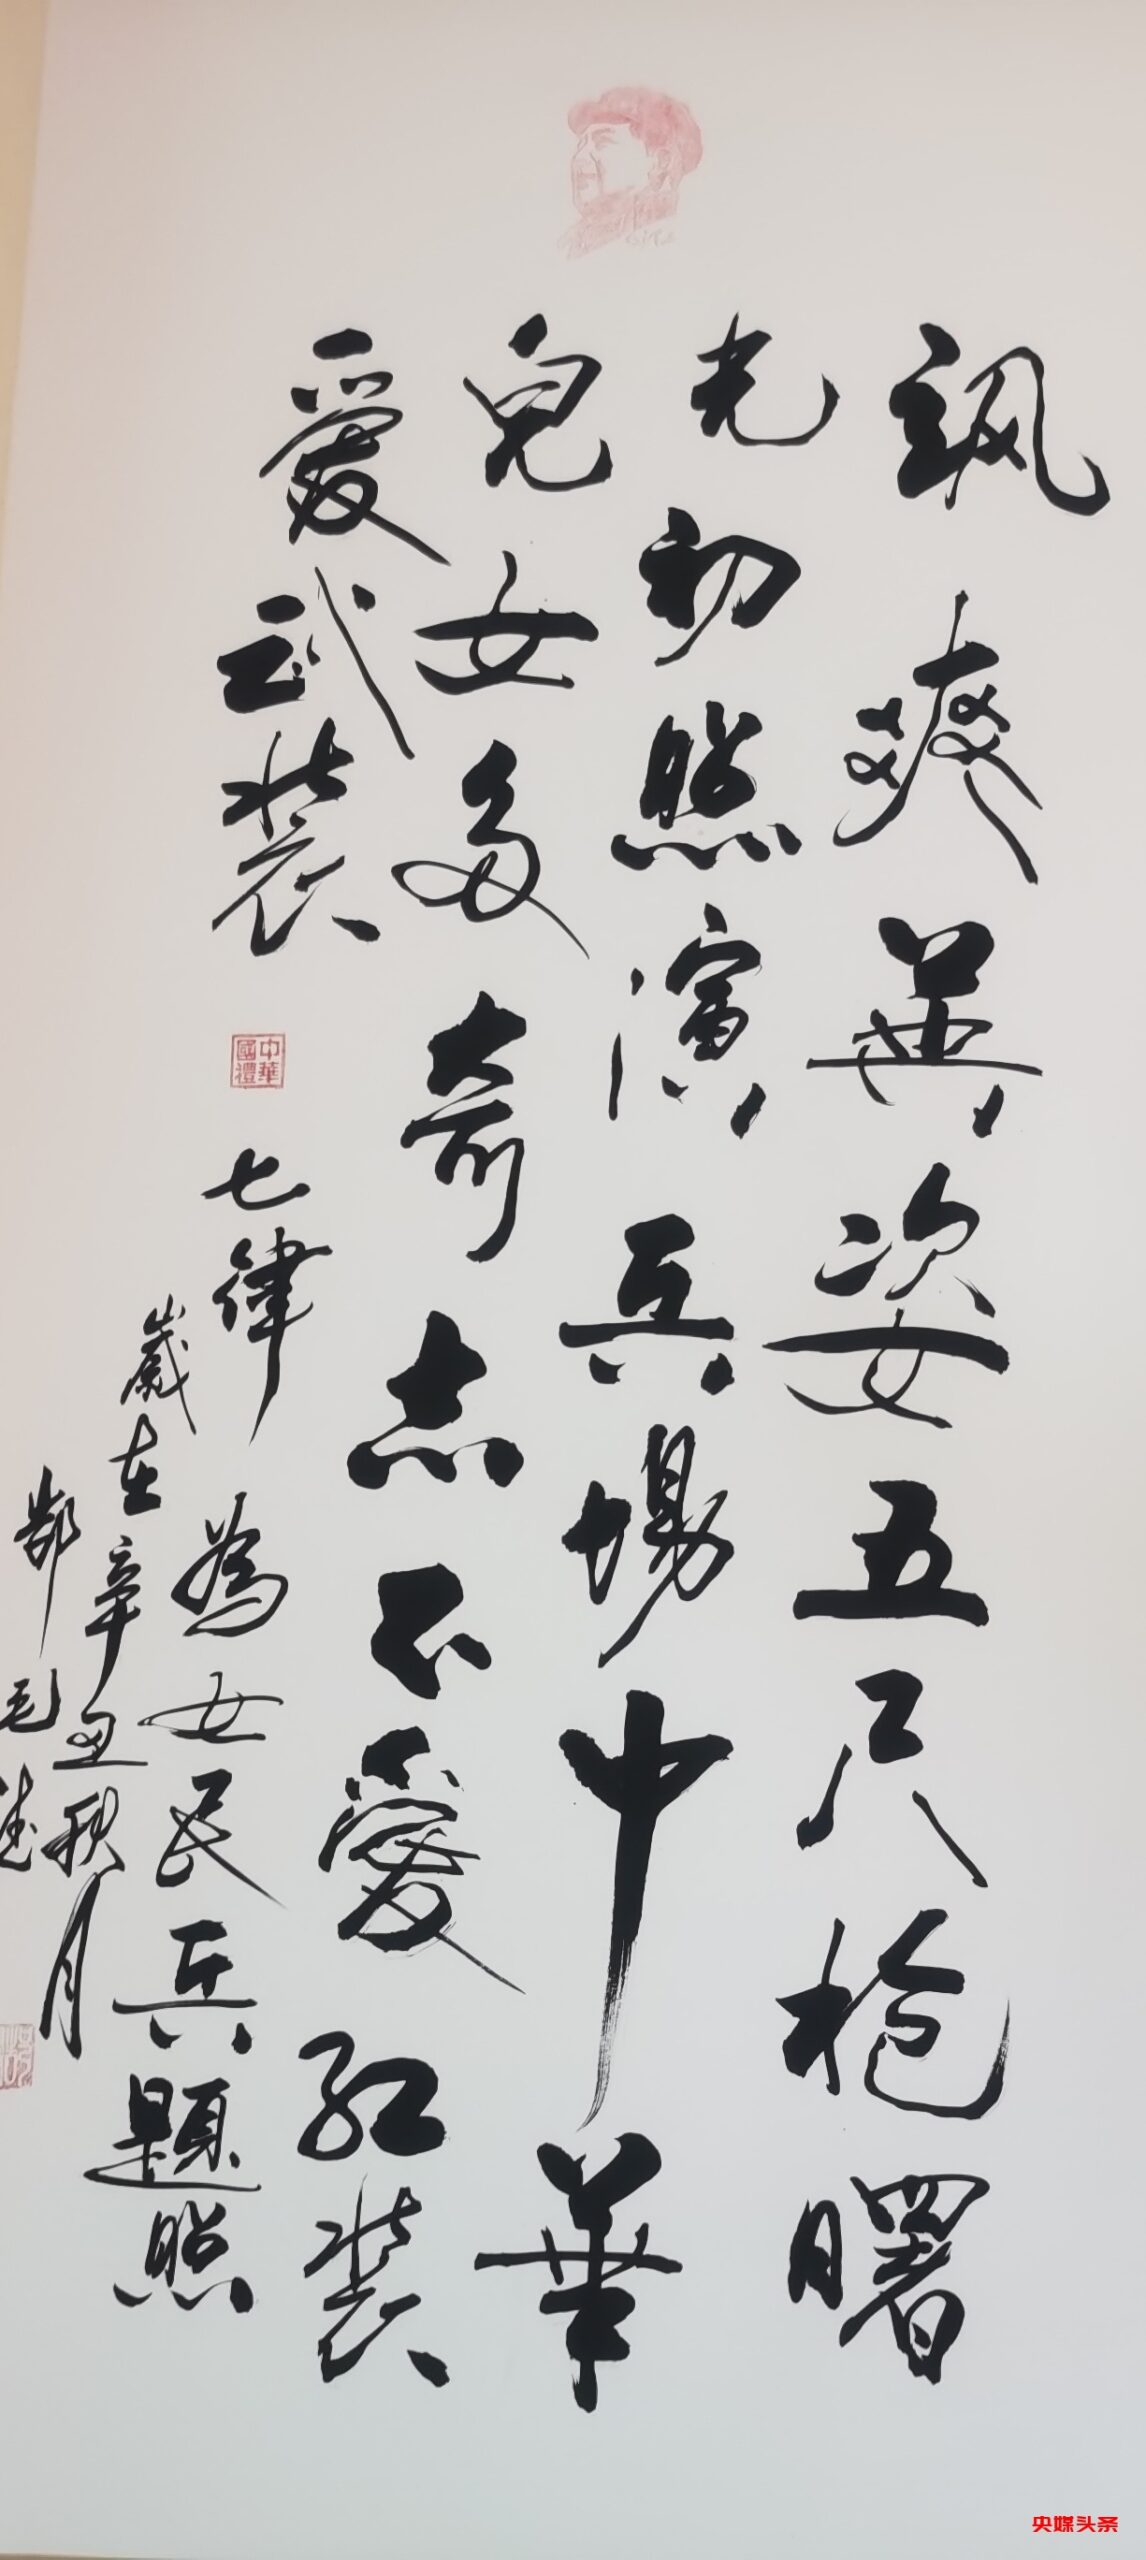 飒爽英姿五尺枪曙
光初照演兵場中華
兒女多奇志不愛紅裝
愛武裝
中華國禮
七律 為女民兵題照
歲在辛丑秋月
毛
央媒头条